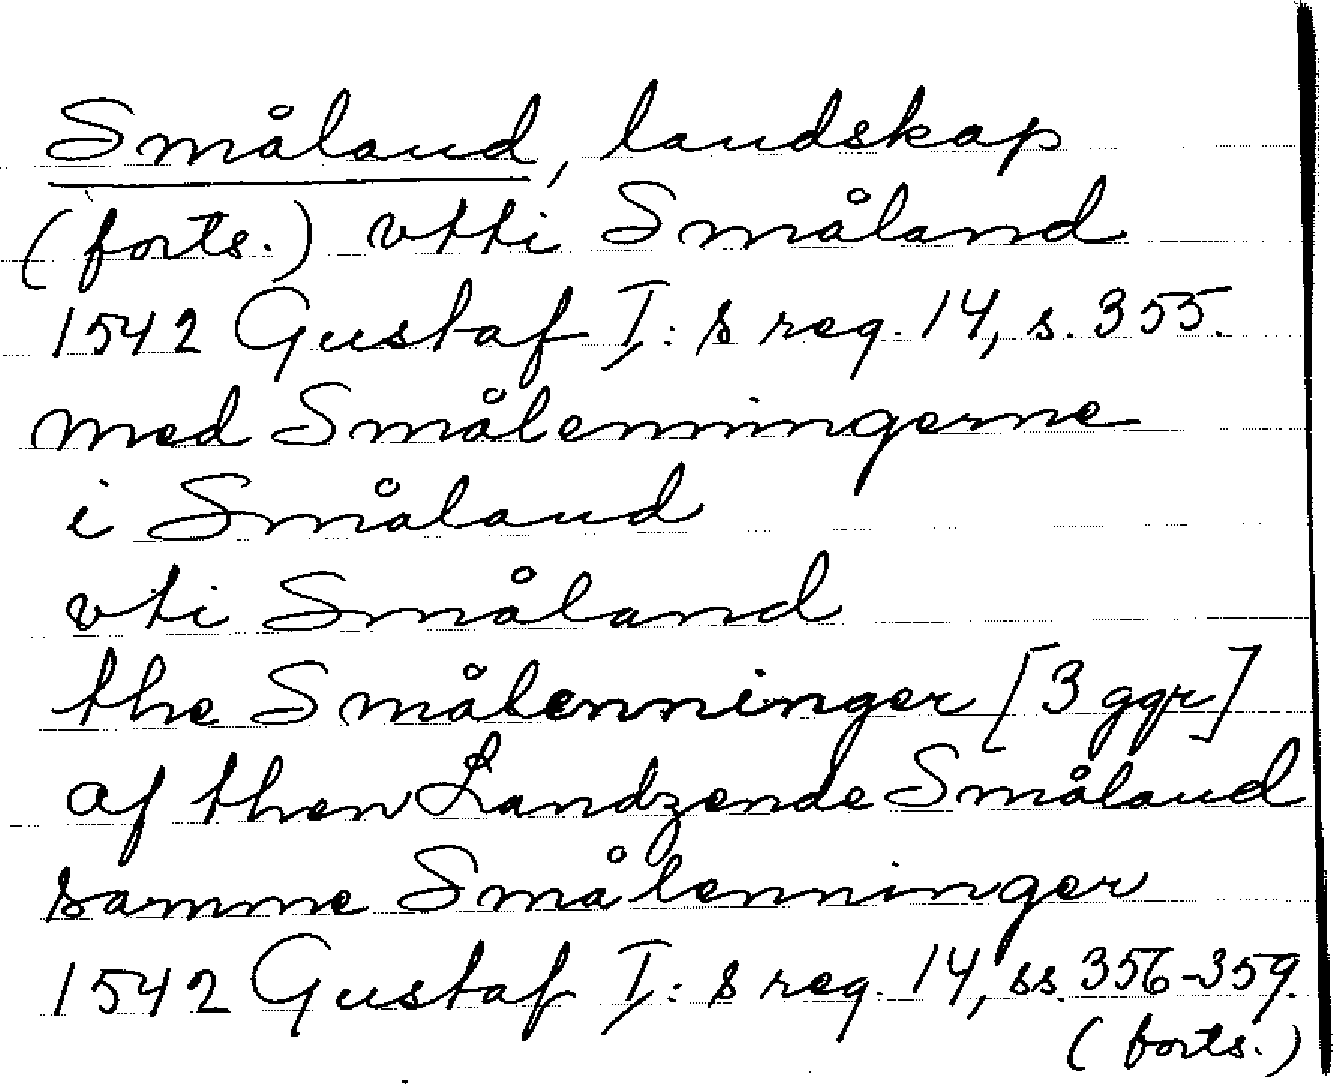 Småland, landskap
(forts.) vtti Småland
1542 Gustaf I:s reg. 14, s. 355.
med Smålenningerne
i Småland
vti Småland
the Smålenninger [3 ggr]
af then Landzende Småland
samme Smålenninger
1542 Gustaf I:s reg. 14, ss. 356-359.
(forts.)